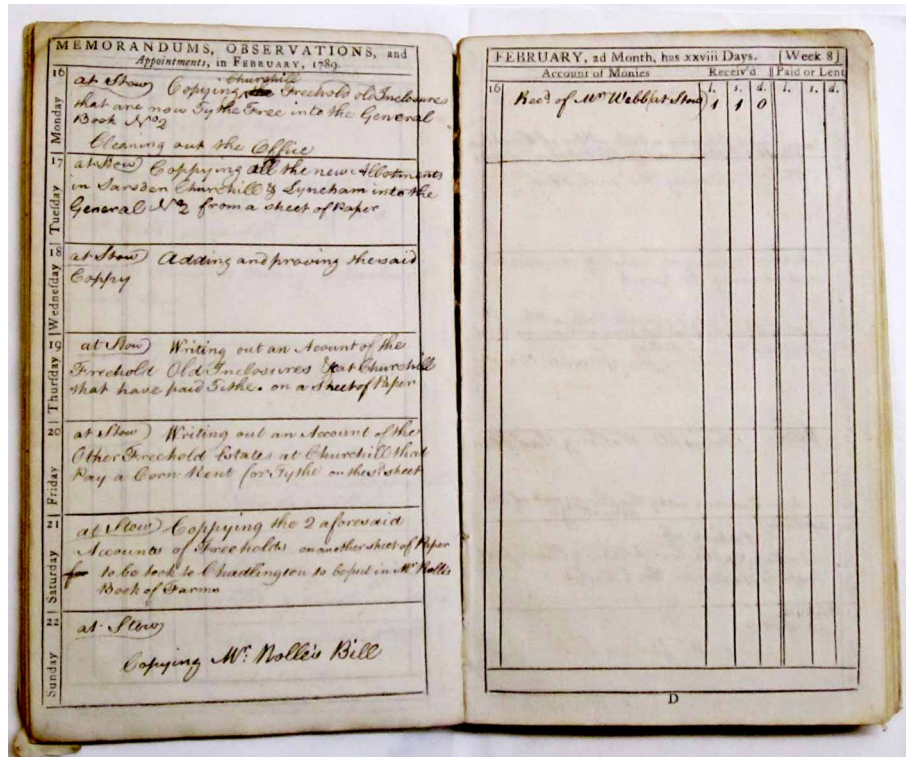 MEMORANDUMS, OBSERVATIONS, and
Appointments, in FEBRUARY, 1789.
16
Monday
at Stow) Copying Churchill Freehold old Inclosures
that are now Tythe Free into the General
Book No 2
Cleaning out the Office
17
Tuesday
at Stow) Coppying all the new Allotments
in Sarsden Churchill & Lyneham into the
General No 2 from a sheet of Paper
18
Wednesday
at Stow) Adding and proving the said
Coppy
19
Thursday
at Stow) Writing out an Account of the
Freehold Old Inclosures at Churchill
that have paid Tithe. on a sheet of Paper
20
Friday
at Stow) Writing out an Account of the
Other Freehold Estates at Churchill that
Pay a Corn Rent for Tythe on the sd. sheet
21
Saturday
at Stow) Coppying the 2 aforesaid
Accounts of Freeholds on another sheet of Paper
to be took to Chadlington to be put in Mr. Rolle's
Book of Farms
22
Sunday
at Stow)
Copying Mr. Rolle's Bill
FEBRUARY, 2d Month, has xxviii Days. [Week 8]
Account of Monies Receiv'd Paid or Lent
l. s. d. l. s. d.
16 Recd. of Mr Webb (at Stow) 1 1 0
D